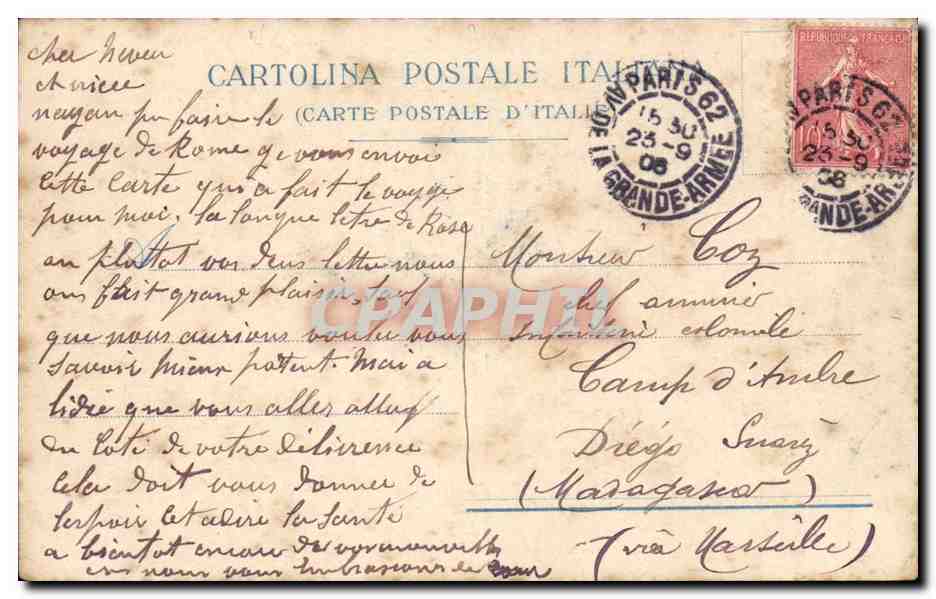 cher neveu
et niece
nayan pu faire le
voyage de Rome ge vous envois
cette carte qui a fait le voyage
pour moi. la longue letre de Rose
ou plutot vos deus lettre nous
ons fait grand plaisir, sauf
que nous aurions voulu vous
savoir mieux portent. Mai a
lidée que vous alles
du coté de votre délivrence
cela doit vous donner de
lespoir cetadire la santé
a bientot encore de vos nouvelles
nous vous embrassons de coeur
CARTOLINA POSTALE ITALIANA
(CARTE POSTALE D'ITALIE
PARIS 62
15 30
23-9
06
AV. DE LA GRANDE-ARMÉE
REPUBLIQUE FRANÇAISE
10
PARIS 62
15 30
23-9
06
GRANDE-ARMÉE
CPAPHIL
Monsieur Coz
chef
Infanterie coloniale
Camp d'Ambre
Diégo Suarez
(Madagascar)
(via Marseille)